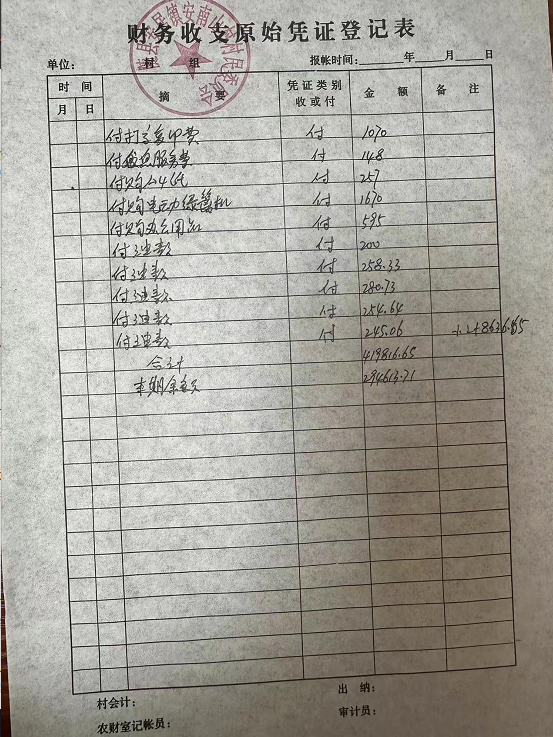 财务收支原始凭证登记表
单位： 村 组 报帐时间： 年 月 日
时 间 摘 要 凭证类别 收或付 金 额 备 注
月 日
付打字复印费 付 1070
付 服务费 付 148
付购A4纸 付 257
付购电动 机 付 1670
付购办公用品 付 595
付 款 付 200
付 款 付 258.33
付 款 付 280.73
付 款 付 254.64
付 款 付 245.06
合计 419816.65
本期余款 294613.71
村会计： 出 纳：
农财室记帐员： 审计员：